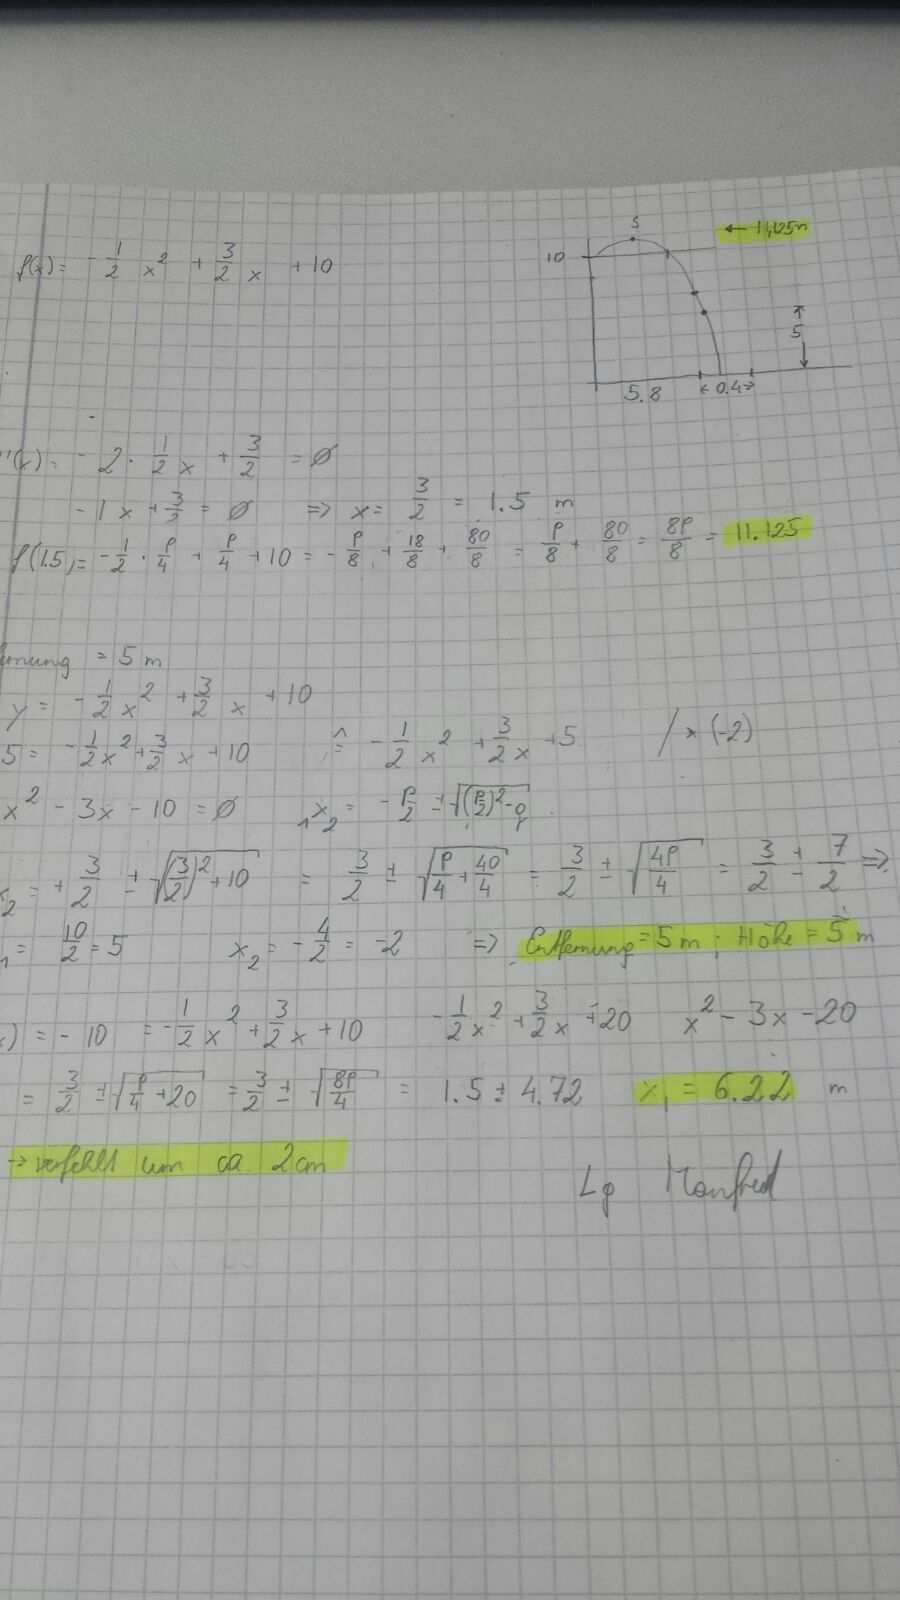 S
← 11,125m
10
f(x) = -1/2 x² + 3/2 x + 10
5
5.8 ← 0.4 →
'(x) = -2 · 1/2 x + 3/2 = 0
-1x + 3/2 = 0 ⇒ x = 3/2 = 1.5 m
f(1.5) = -1/2 · 9/4 + 9/4 + 10 = -9/8 + 18/8 + 80/8 = 9/8 + 80/8 = 89/8 = 11.125
ernung = 5 m
y = -1/2 x² + 3/2 x + 10
5 = -1/2 x² + 3/2 x + 10 ≙ -1/2 x² + 3/2 x + 5 / * (-2)
x² - 3x - 10 = 0 ₁x₂ = -p/2 ± √((p/2)² - q)
x₂ = + 3/2 ± √((3/2)² + 10) = 3/2 ± √(9/4 + 40/4) = 3/2 ± √(49/4) = 3/2 ± 7/2 ⇒
₁ = 10/2 = 5 x₂ = -4/2 = -2 ⇒ Entfernung = 5 m ; Höhe = 5 m
x) = -10 = -1/2 x² + 3/2 x + 10 -1/2 x² + 3/2 x + 20 x² - 3x - 20
= 3/2 ± √(9/4 + 20) = 3/2 ± √(89/4) = 1.5 ± 4.72 x₁ = 6.22 m
→ verfehlt um ca. 2cm
Lg Manfred